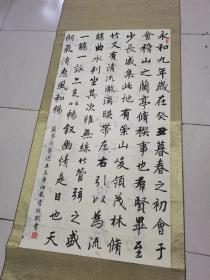 永和九年歲在癸丑暮春之初會于
會稽山之蘭亭脩稧事也羣賢畢至
少長咸集此地有崇山峻領茂林脩
竹又有清流激湍暎帶左右引以為流
觴曲水列坐其次雖無絲竹管弦之盛
一觴一詠亦足以暢叙幽情是日也天
朗氣清惠風和暢
蘭亭序